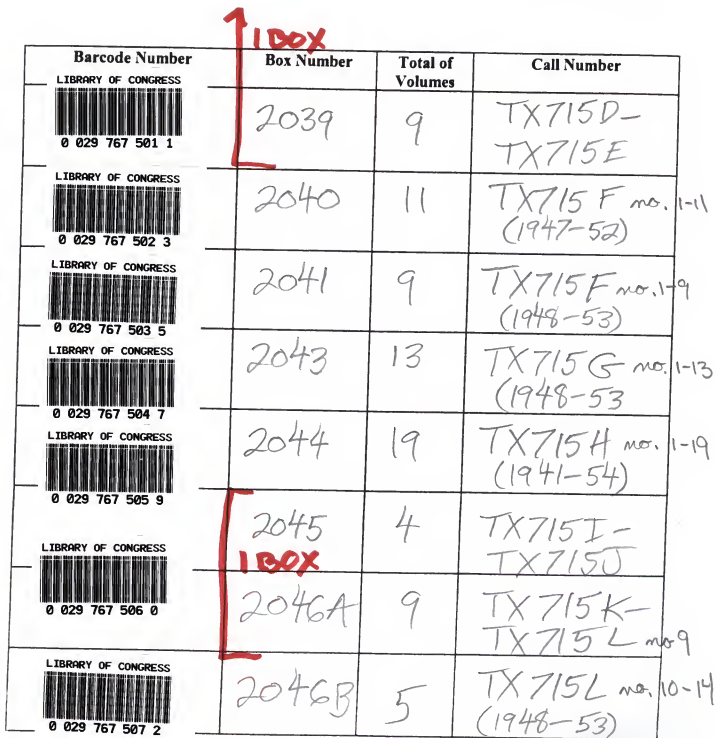 1 BOX
Barcode Number Box Number Total of Volumes Call Number
LIBRARY OF CONGRESS
0 029 767 501 1
2039 9 TX715D-
TX715E
LIBRARY OF CONGRESS
0 029 767 502 3
2040 11 TX715 F no. 1-11
(1947-52)
LIBRARY OF CONGRESS
0 029 767 503 5
2041 9 TX715F no. 1-9
(1948-53)
LIBRARY OF CONGRESS
0 029 767 504 7
2043 13 TX715 G no. 1-13
(1948-53
LIBRARY OF CONGRESS
0 029 767 505 9
2044 19 TX715H no. 1-19
(1941-54)
2045 4 TX715I-
TX715J
LIBRARY OF CONGRESS
0 029 767 506 0
1 BOX
2046A 9 TX715K-
TX715L no 9
LIBRARY OF CONGRESS
0 029 767 507 2
2046B 5 TX715L no. 10-14
(1948-53)